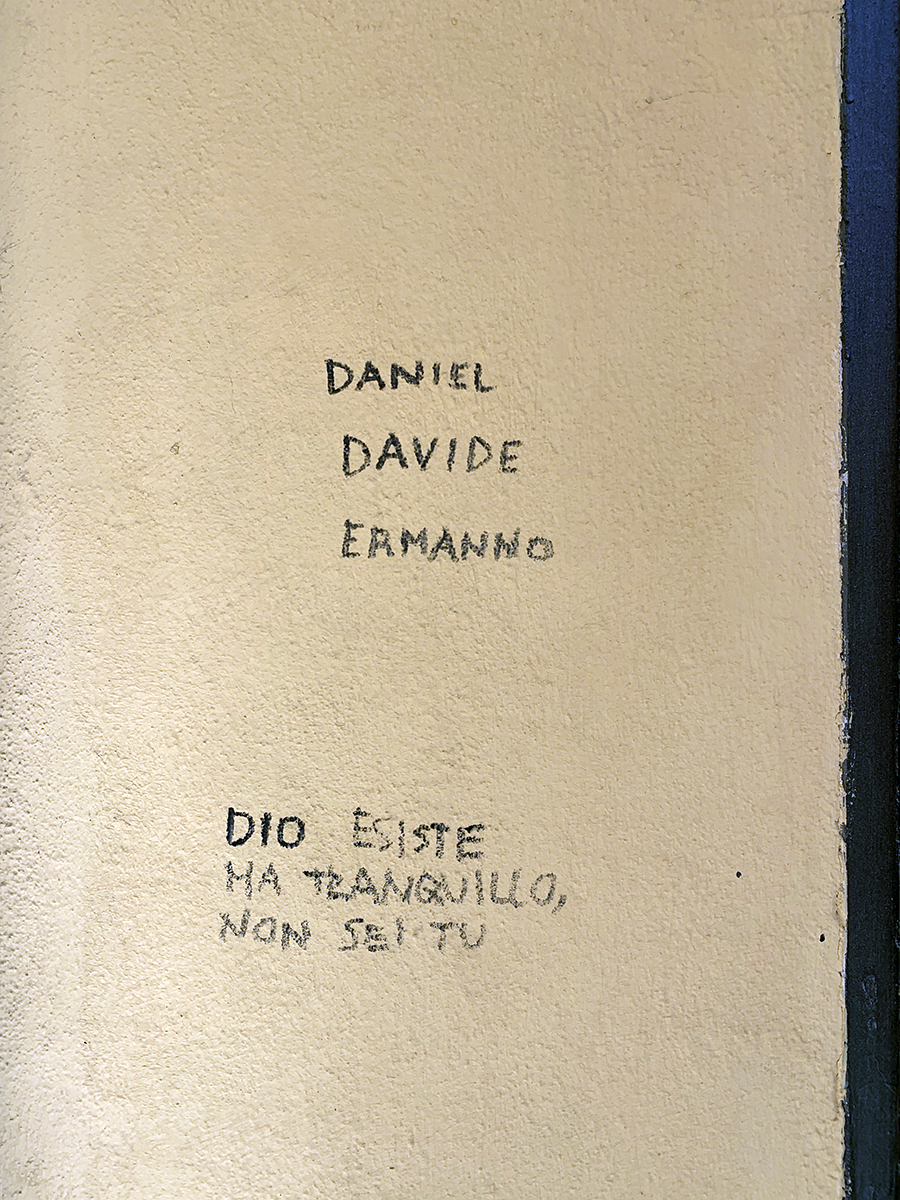 DANIEL
DAVIDE
ERMANNO
DIO ESISTE
MA TRANQUILLO,
NON SEI TU